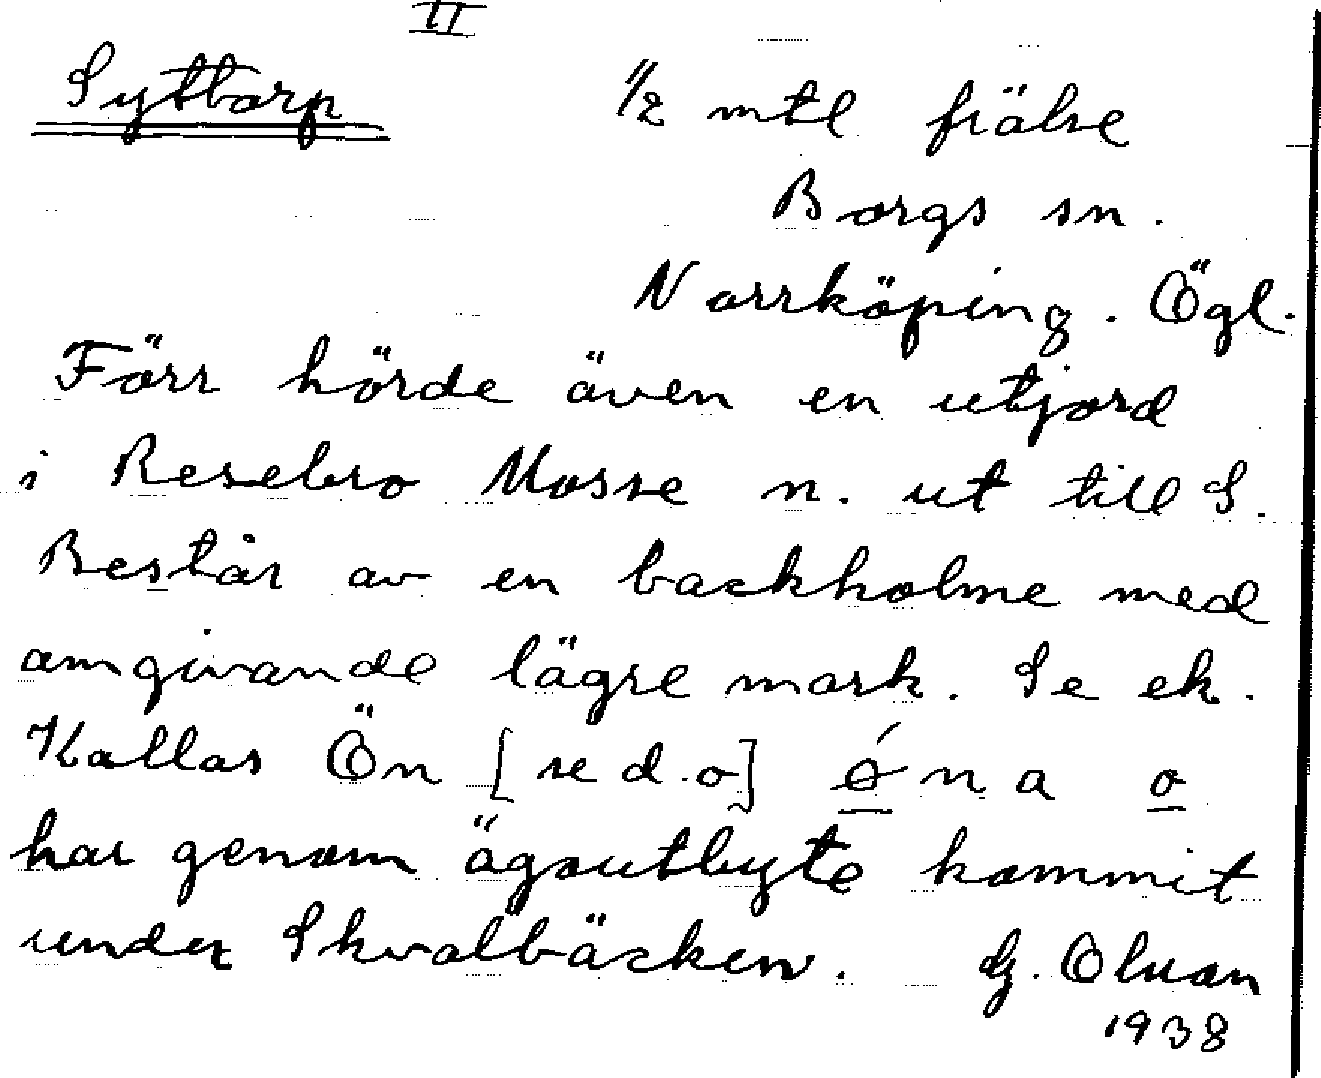 II
Syttorp 1/2 mtl frälse
Borgs sn.
Norrköping. Ögl.
Förr hörde även en utjord
i Resebro Mosse n. ut till S.
Består av en backholme med
omgivande lägre mark. Se ek.
Kallas Ön [se d.o] ó n a o
har genom ägoutbyte kommit
under Skvalbäcken. G. Olson
1938